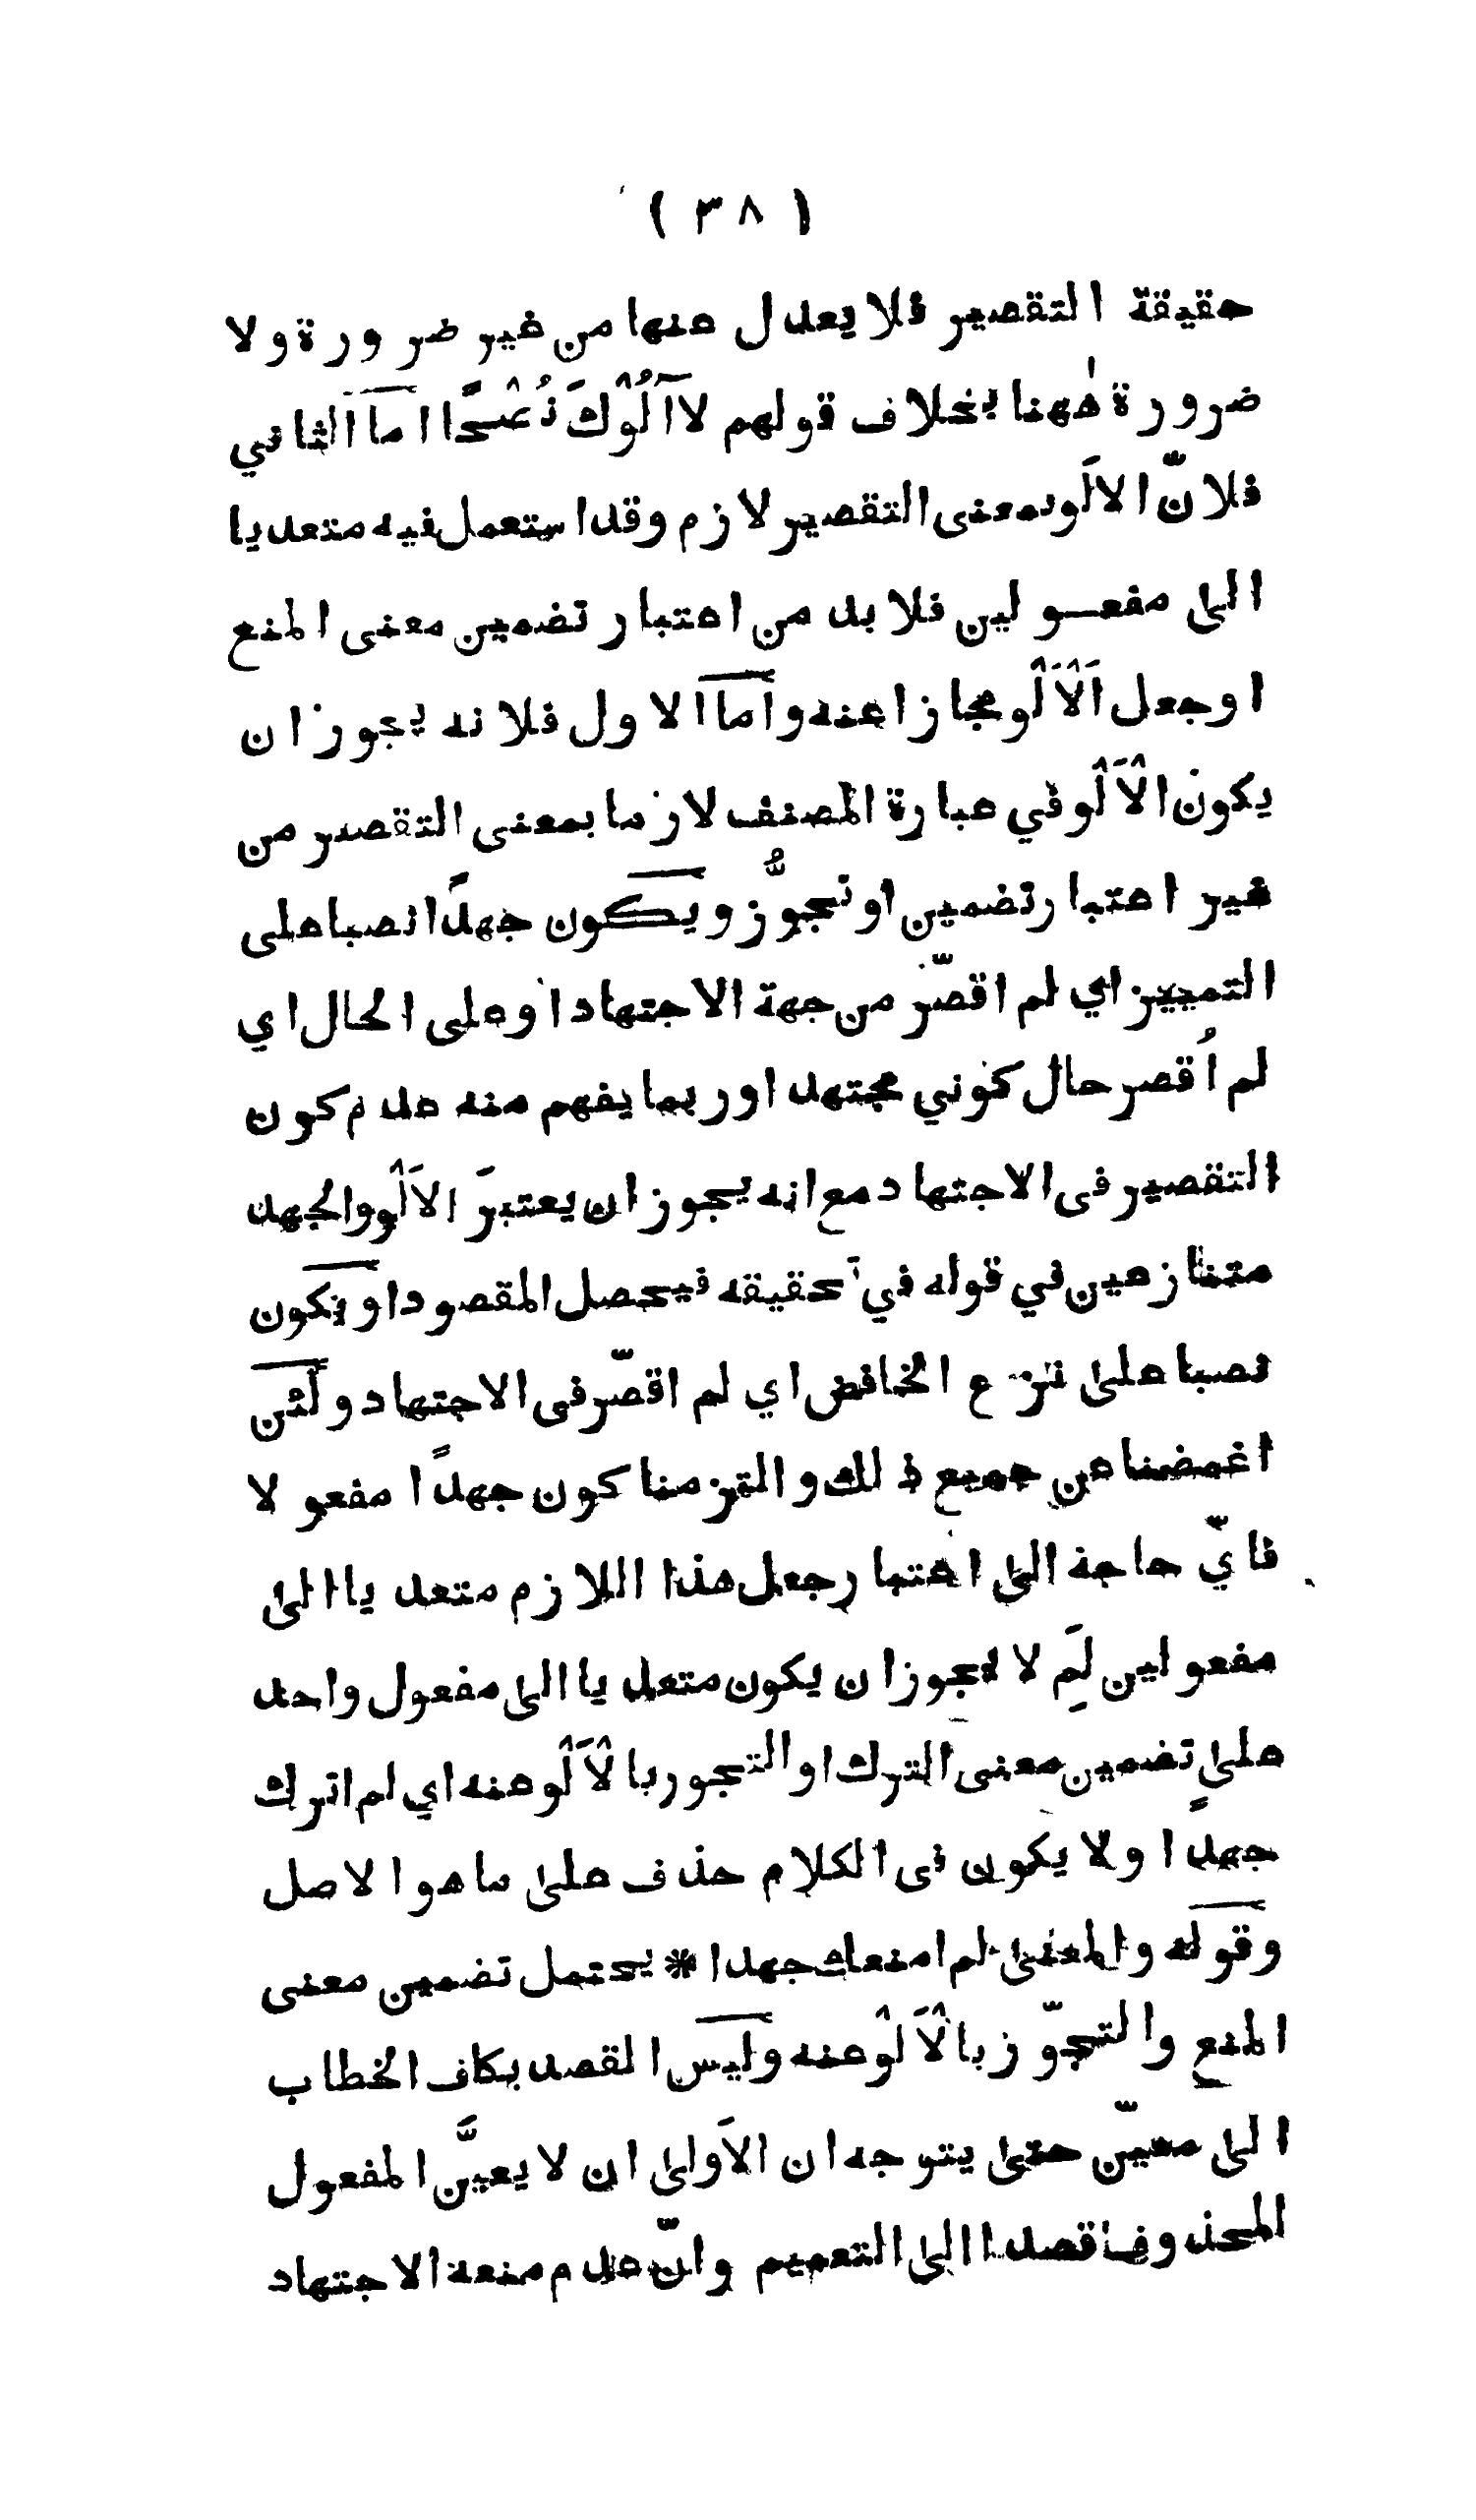 ( ٣٨ )
حقيقة التقصير فلا يعدل عنها من غير ضرورة ولا
ضرورة هٰهنا بخلاف قولهم لاآلُوْكَ نُصْحًا اما الثاني
فلانّ الالَو بمعنى التقصير لازم وقد استعمل فيه متعديا
الى مفعولين فلا بد من اعتبار تضمين معنى المنع
او جعل اَلْاَلْو مجازا عنه واما الاول فلانه يجوز ان
يكون الْاَلْو في عبارة المصنف لازما بمعنى التقصير من
غير اعتبار تضمين او تجوُّز ويكون جهدًا نصبا على
التمييز اي لم اقصّر من جهة الاجتهاد او على الحال اي
لم اُقصر حال كوني مجتهدا وربما يفهم منه عدم كون
التقصير فى الاجتهاد مع انه يجوز ان يعتبرَ الاَلْو والجهد
متنازعين في قوله في تحقيقه فيحصل المقصود او يكون
نصبا على نزع الخافض اي لم اقصّر فى الاجتهاد ولئن
اغمضنا عن جميع ذلك والتزمنا كون جهدًا مفعولا
فايّ حاجة الى اعتبار جعل هذا اللازم متعديا الى
مفعولين لِمَ لا يجوز ان يكون متعديا الى مفعول واحد
على تضمين معنى الترك او التجوز بالْاَلْو عنه اي لم اترك
جهدًا ولا يكون فى الكلام حذف على ما هو الاصل
وقوله والمعنى لم امنعك جهدا * يحتمل تضمين معنى
المنع والتجوّز بالْاَلْو عنه وليس القصد بكاف الخطاب
الى معيّن حتى يتوجه ان الاَولى ان لا يعيَّن المفعول
المحذوف قصدا الى التعميم وانّ عدم منعه الاجتهاد